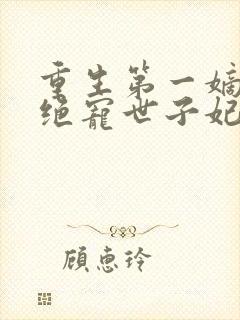 重生第一嫡
绝宠世子妃
顾惠玲